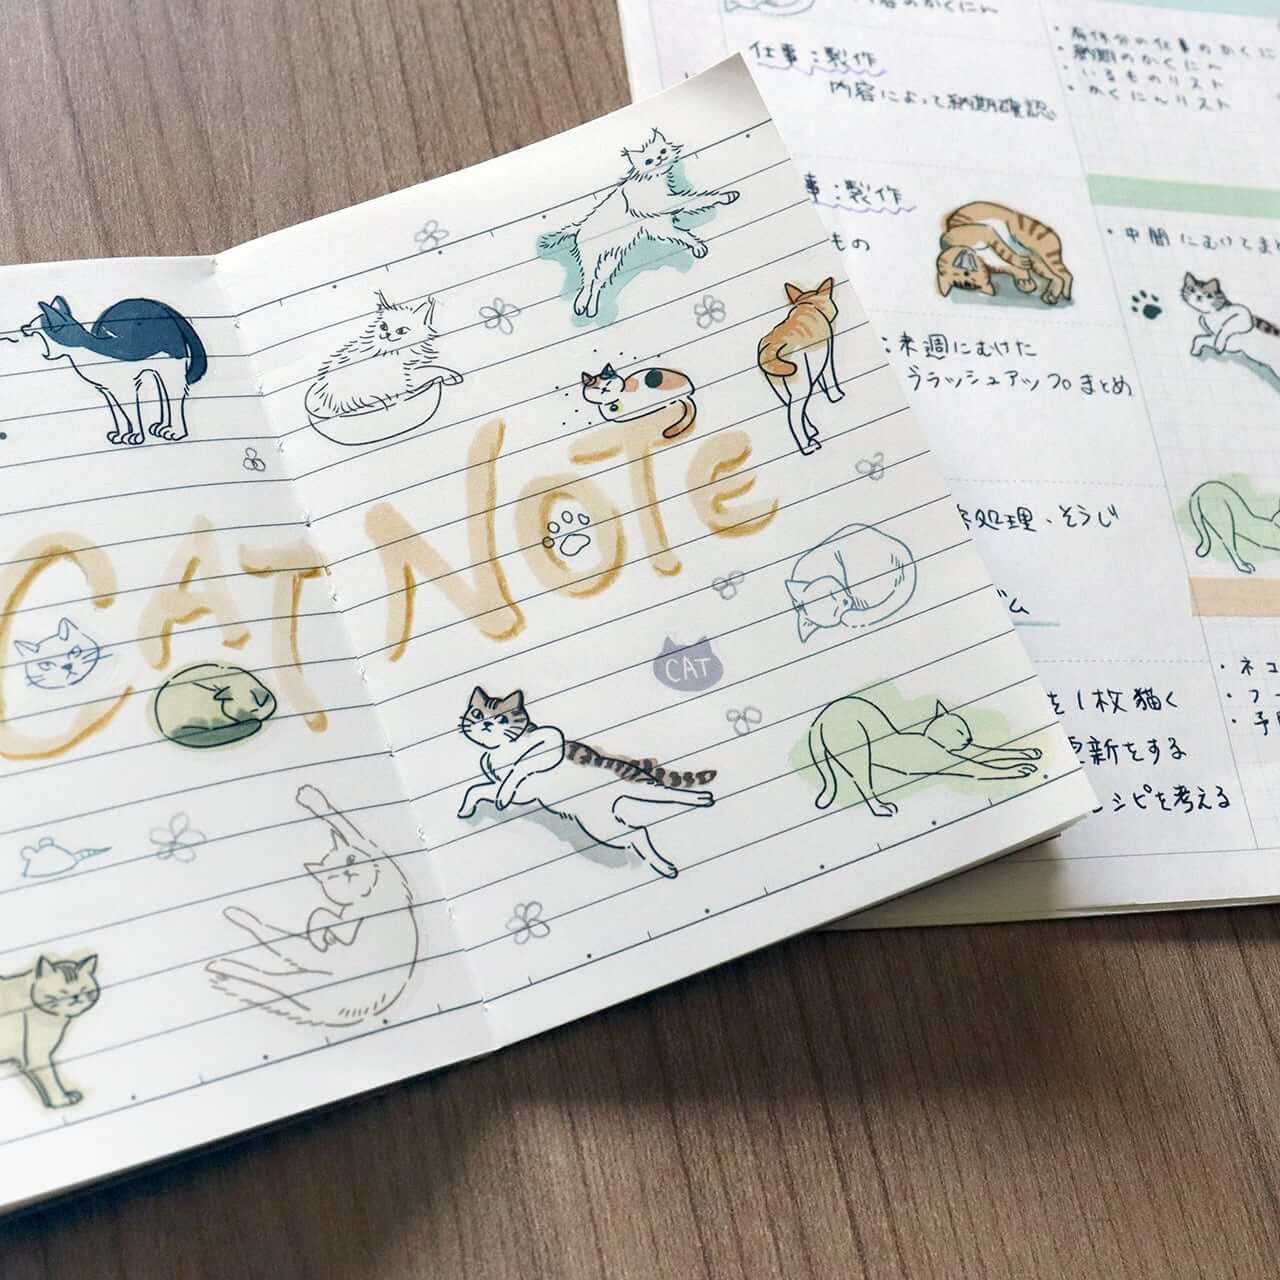 CAT NOTE
CAT
仕事:製作
内容によって納期確認
事:製作
もの
:来週にむけた
ブラッシュアップまとめ
処理・そうじ
ズム
を1枚描く
更新をする
レシピを考える
・納期のかくにん
・いるものリスト
・かくにんリスト
・中間にむけてま
・ネコ
・フ
・予